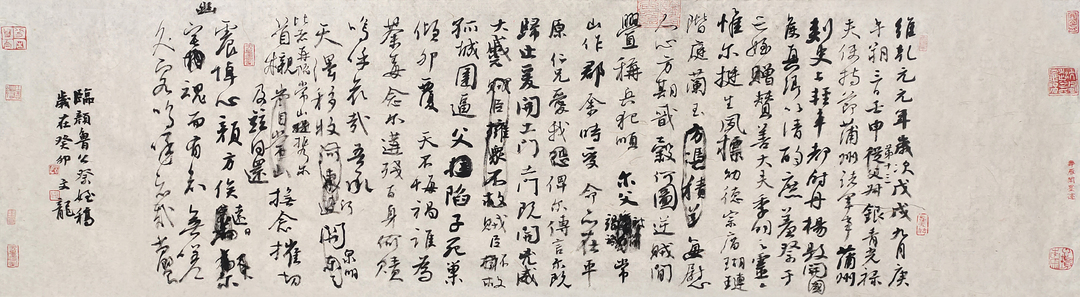 維乾元元年歲次戊戌九月庚
午朔三日壬申第十三從父叔銀青光祿
夫使持節蒲州諸軍事蒲州
刺史上輕車都尉丹楊縣開國
侯真卿以清酌庶羞祭于
亡姪贈贊善大夫季明之靈
惟爾挺生夙標幼德宗廟瑚璉
階庭蘭玉方憑積善每慰
人心方期戩穀何圖逆賊間
釁稱兵犯順爾父常
山作郡余時受命亦在平
原仁兄愛我恐俾爾傳言爾既
歸止爰開土門土門既開凶威
大蹙賊臣擁眾不救賊臣不救
孤城圍逼父陷子死巢
傾卵覆天不悔禍誰為
荼毒念爾遘殘百身何贖
嗚呼哀哉吾承
天澤移牧河東近河關泉明
比者再陷常山攜爾
首櫬及茲同還撫念摧切
震悼心顏方俟遠日卜爾
幽宅魂而有知無嗟
久客嗚呼哀哉尚饗
臨顏魯公祭姪稿
歲在癸卯文龍